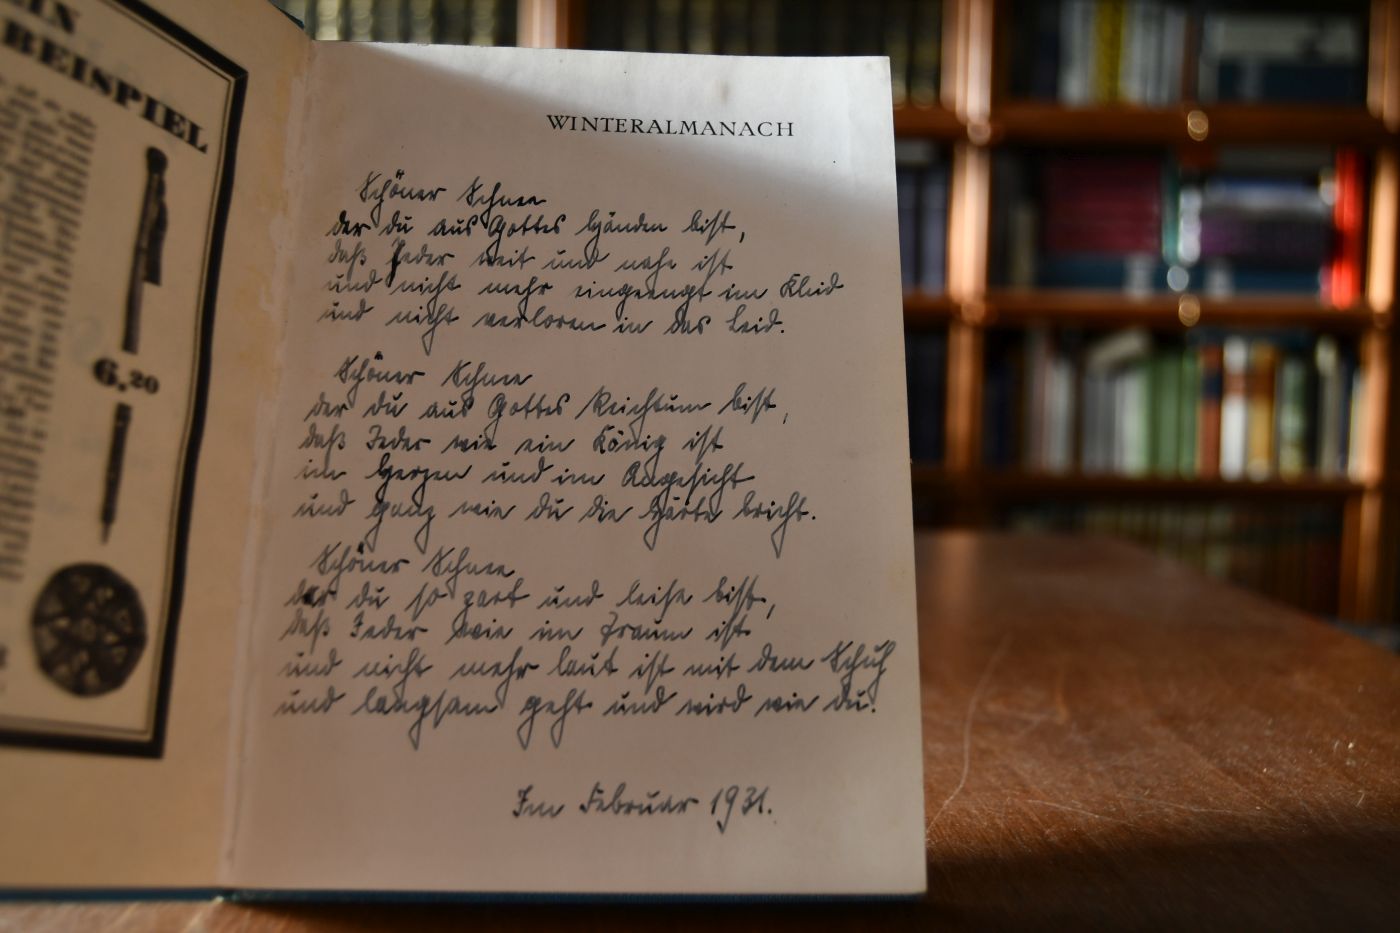 EIN
BEISPIEL
6,20
WINTERALMANACH
Schöner Schnee
der du aus Gottes Händen bist,
daß Jeder weit und nahe ist
und nicht mehr eingeengt im Kleid
und nicht verloren in das Leid.
Schöner Schnee
der du aus Gottes Reichtum bist,
daß Jeder wie ein König ist
im Herzen und im Angesicht
und ganz wie du die Härte bricht.
Schöner Schnee
der du so zart und leise bist,
daß Jeder wie im Traum ist
und nicht mehr laut ist mit dem Schuh
und langsam geht und wird wie du.
Im Februar 1931.